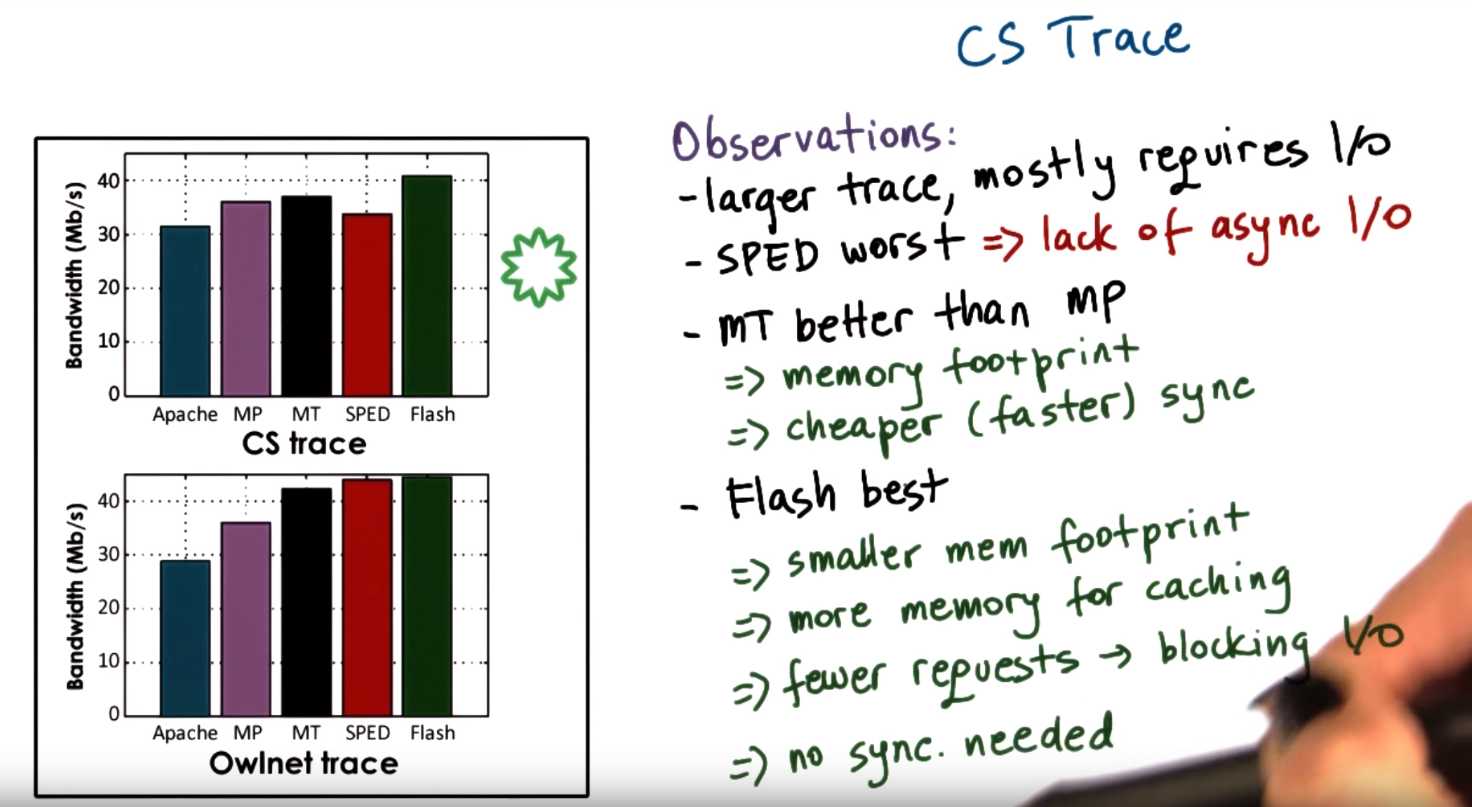 CS Trace
40
30
20
10
0
Bandwidth (Mb/s)
Apache MP MT SPED Flash
CS trace
40
30
20
10
0
Bandwidth (Mb/s)
Apache MP MT SPED Flash
Owlnet trace
Observations:
- larger trace, mostly requires I/O
- SPED worst => lack of async I/O
- MT better than MP
=> memory footprint
=> cheaper (faster) sync
- Flash best
=> smaller mem footprint
=> more memory for caching
=> fewer requests → blocking I/O
=> no sync. needed